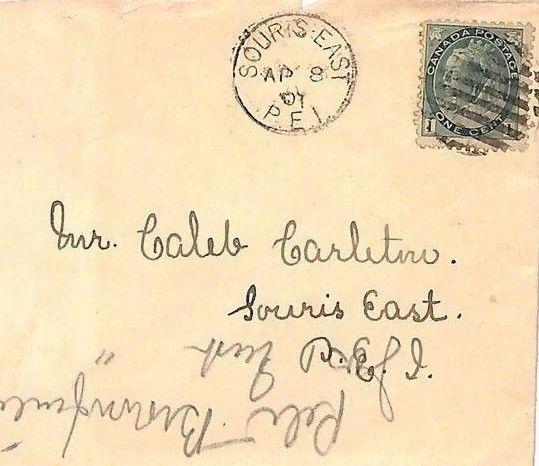 SOURIS EAST
AP 8
01
P.E.I.
CANADA POSTAGE
1 ONE CENT 1
Mr. Caleb Carleton.
Souris East.
P.E.I.